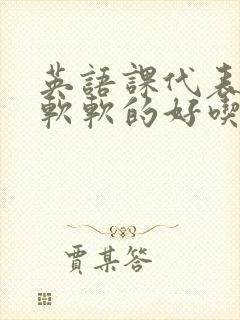 英語課代表
軟軟的好喫
賈某答